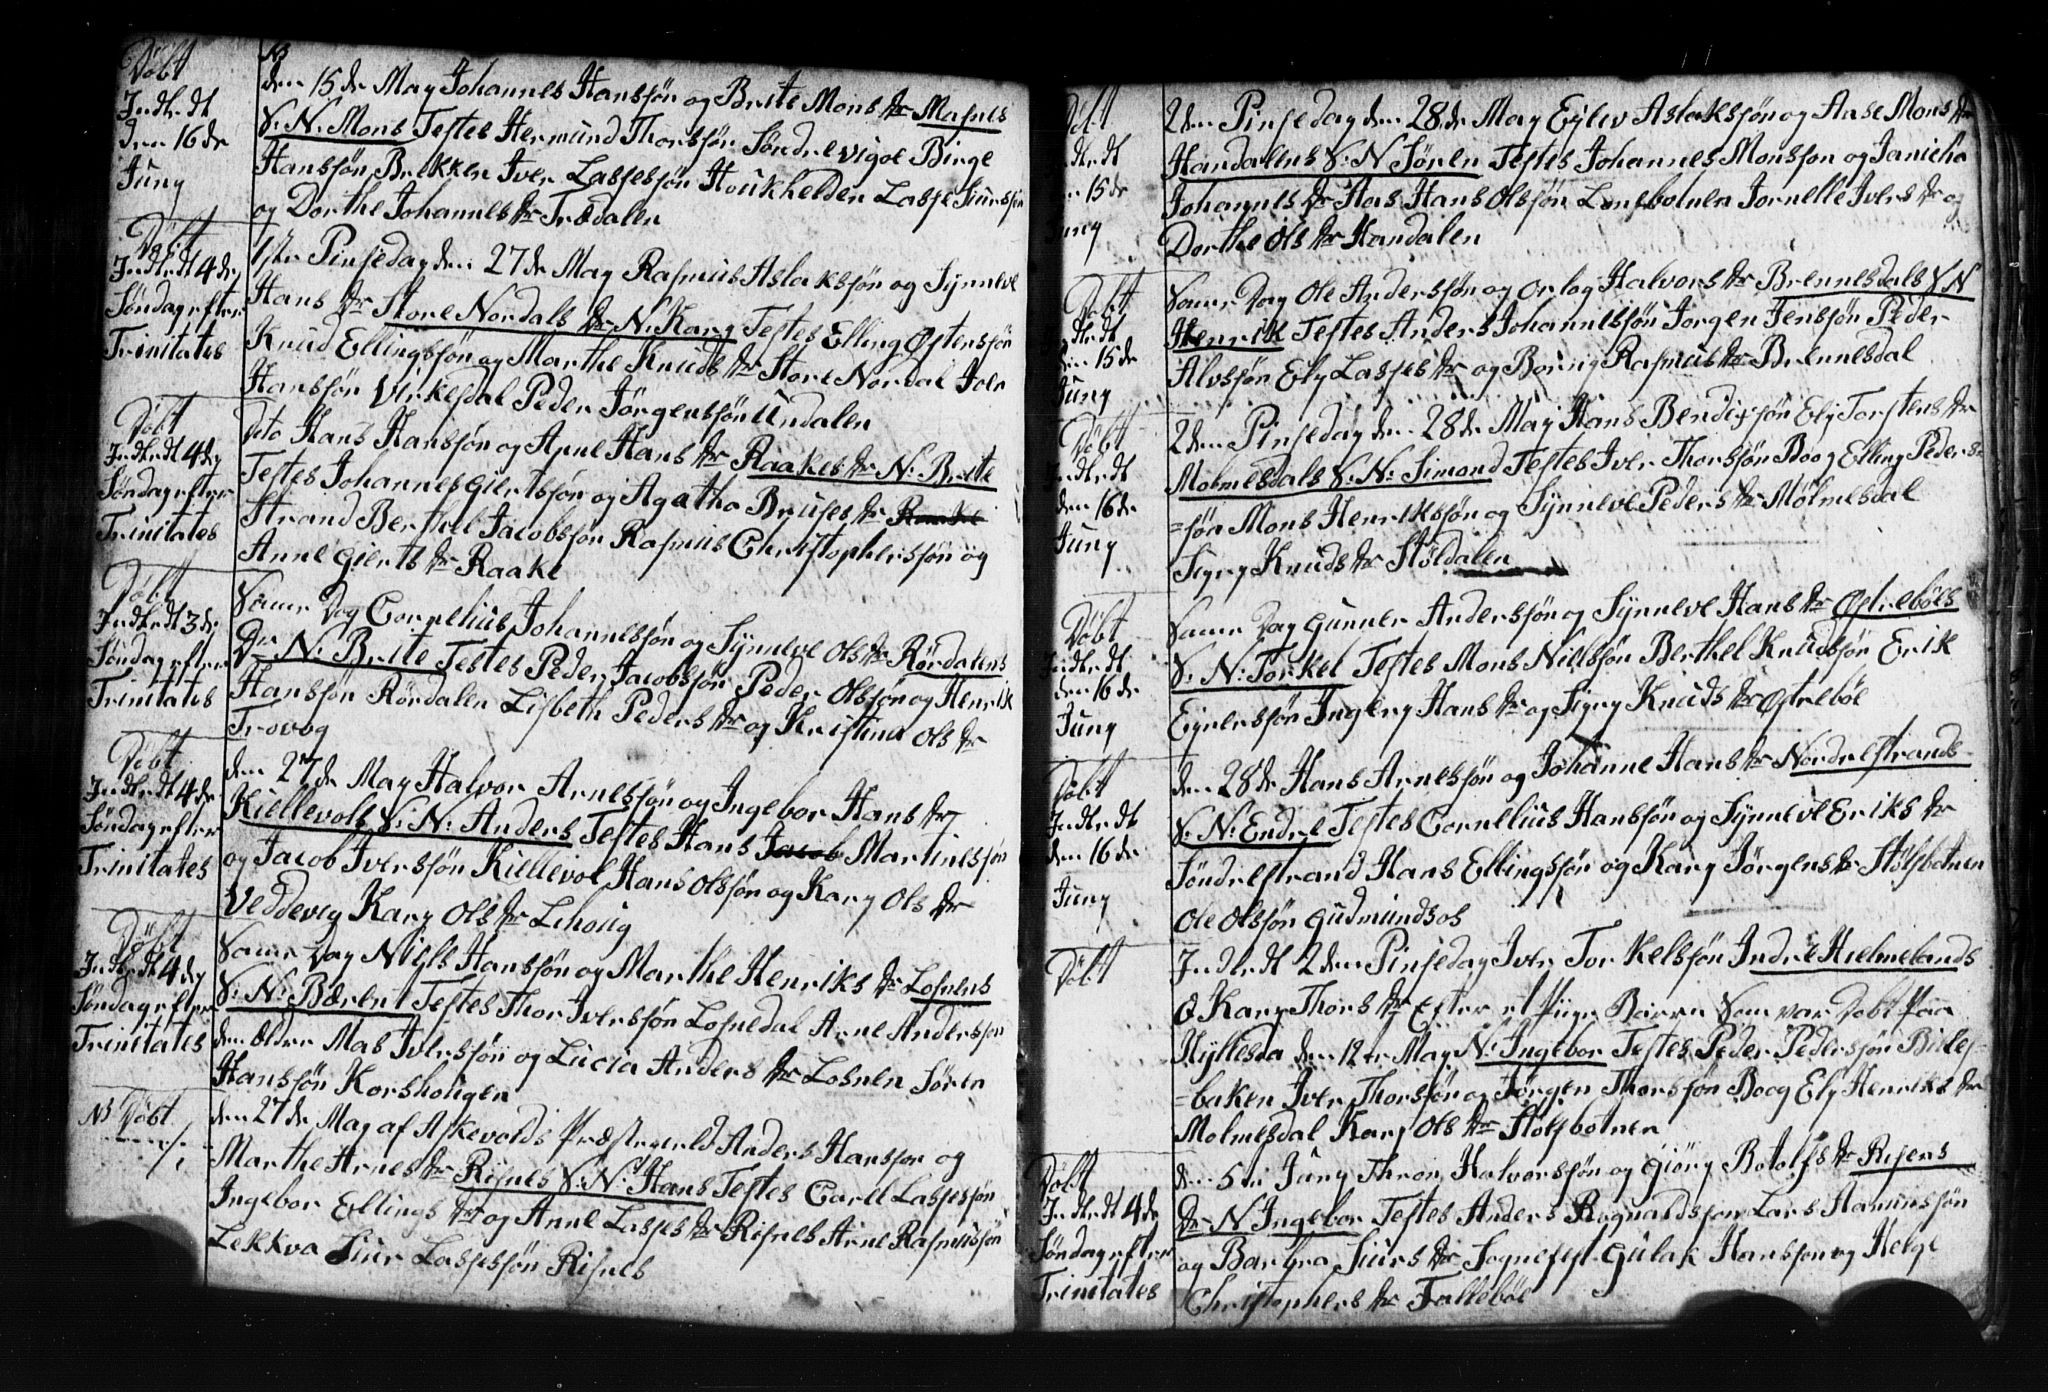 Döbt
Indtrdt
den 16 de
Juny
den 15 de May Johannes Hansjøn og Brite Mons dtr Masnes
S: N: Mons Testes Hermund Thorsjøn Søndrevigoe Birge
Hansjøn Brekken Iver Lassesjøn Houkhelden Lasse Siursjøn
og Dorthe Johannes dtr Trædalen
Döbt
Indtrdt 4 de
Søndag efter
Trinitates
1ste Pinsedag den 27 de May Rasmus Aslaksjøn og Synneve
Hans dtr Store Nordals dr N: Kary Testes Elling Østensjøn
Knud Ellingsjøn og Marthe Knuds dtr Store Nordal Iver
Hansjøn Virkesdal Peder Jörgensjøn Undalen
Döbt
Indtrdt 4 de
Søndag efter
Trinitates
Dito Hans Hansjøn og Anne Hans dtr Raakes dr N: Brite
Testes Johannes Giertsjøn og Agatha Bruses dtr
Strand Berthel Jacobsjøn Rasmus Christophersjøn og
Anne Gierts dtr Raake
Döbt
Indtrdt 3 de
Søndag efter
Trinitates
Same Dag Cornelius Johannesjøn og Synneve Ols dtr Rördalens
Dr N: Brite Testes Peder Jacobsjøn Peder Olsjøn og Henrik
Hansjøn Rördalen Lisbeth Peders dtr og Kristina Ols dtr
Trovog
Döbt
Indtrdt 4 de
Søndag efter
Trinitates
den 27 de May Halvor Arnesjøn og Ingebor Hans dtr
Kiellevols S: N: Anders Testes Hans Jacob Martinesjøn
og Jacob Iversjøn Kiellevol Hans Olsjøn og Kary Ols dtr
Veddevig Kary Ols dtr Lihoug
Döbt
Indtrdt 4 de
Søndag efter
Trinitates
Same Dag Niels Hansjøn og Marthe Henriks dtr Losnens
S: N: Bæren Testes Thor Iversjøn Losnedal Arne Andersjøn
den Ældre Mas Iversjøn og Lucia Anders dtr Losnen Sören
Hansjøn Korshougen
NB Döbt
den 27 de May af Askevolds Præsteverld Anders Hansjøn og
Marthe Arnes dtr Risnes S: N: Hans Testes Carll Lassesjøn
Ingebor Ellings dtr og Anne Lasses dtr Risnes Arne Rasmusjøn
Lekkva Siur Lassesjøn Risnes
Döbt
Indtrdt
den 15 de
Juny
2den Pinsedag den 28 de May Eylev Aslaksjøn og Aase Mons dtr
Handalens S: N Sören Testes Johannes Monsjøn og Janicha
Johannes dtr Aas Hans Olsjøn Lonebotnen Jornelle Ivers dtr og
Dorthe Ols dtr Handalen
Döbt
Indtrdt
den 15 de
Juny
Same Dag Ole Andersjøn og Orlog Halvors dtr Brennesdals S N
Henrik Testes Anders Johannesjøn Jorgen Jensjøn Peder
Alvsjøn Ely Lasses dtr og Borny Rasmus dtr Brennesdal
Döbt
Indtrdt
den 16 de
Juny
2den Pinsedag den 28 de May Hans Bendixjøn Ely Torstens dtr
Molmesdals S: N: Simond Testes Iver Thorsjøn Boog Elling Peders
=jøn Mons Henriksjøn og Synneve Peders dtr Mölmesdal
Signy Knuds dtr Støldalen
Döbt
Indtrdt
den 16 de
Juny
Same Dag Gunner Andersjøn og Synneve Hans dtr Østreböes
S: N: Torkel Testes Mons Nielsjøn Berthel Knudsjøn Erik
Eynersjøn Ingery Hans dtr og Signy Knuds dtr Østreböe
Döbt
Indtrdt
den 16 de
Juny
den 28 de Hans Arnesjøn og Johanne Hans dtr Nordrestrands
S: N: Endre Testes Cornelius Hansjøn og Synneve Eriks dtr
Söndrestrand Hans Ellingsjøn og Kary Jörgens dtr Stölsbotnen
Ole Olsjøn Gudmundsos
Döbt
Indtrdt 2den Pinsedag Iver Torkelsjøn Indre Hielmelands
O Kary Thors dtr Efter et Pige Barn Som var Dobt Paa
Hyllesda den 12 te May N: Ingebor Testes Peder Pedersjøn Birkes=
=baken Iver Thorsjøn og Jørgen Thorsjøn Boog Ely Henriks dtr
Molmesdal Kary Ols dtr Stolsbotnen
Dobt
Indtrdt 4 de
Søndag efter
Trinitates
den 5 te Juny Thron Halvorsjøn og Giöry Botolfs dtr Risens
dr N Ingebor Testes Anders Rognaldsjøn Lars Hamunsjøn
og Barbra Siurs dtr Sognefest Gulak Hansjøn og Helge
Christophers dtr Talleböe